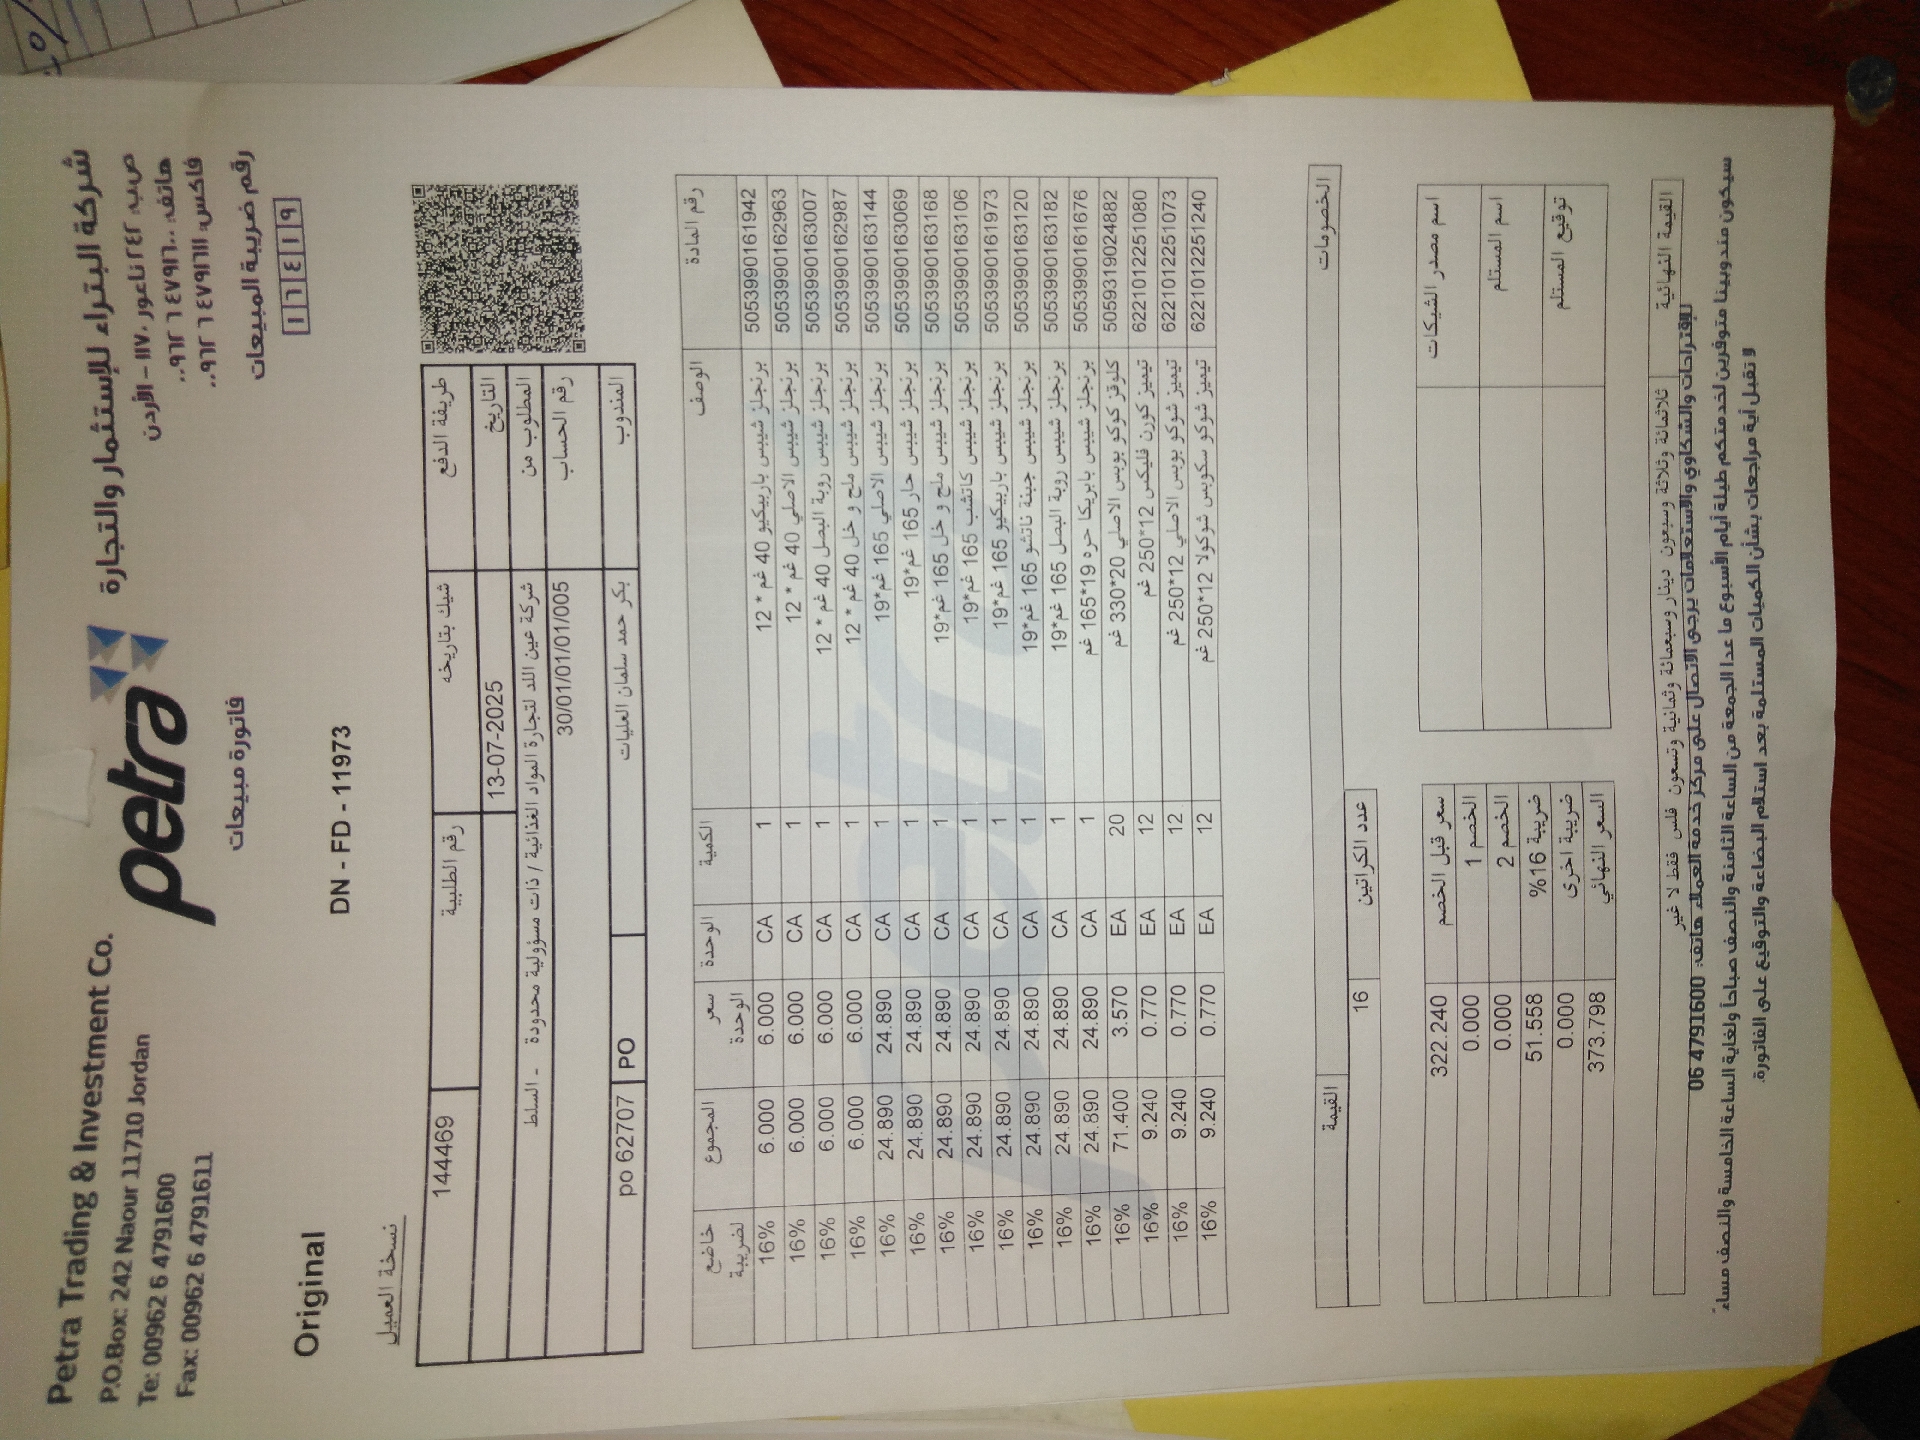 Petra Trading & Investment Co.
P.O.Box: 242 Naour 11710 Jordan
Te: 00962 6 4791600
Fax: 00962 6 4791611
petra
شركة البتراء للإستثمار والتجارة
ص.ب: ٢٤٢ ناعور ١١٧١٠ - الأردن
هاتف: ٤٧٩١٦٠٠ ٦ ٠٠٩٦٢
فاكس: ٤٧٩١٦١١ ٦ ٠٠٩٦٢
رقم ضريبة المبيعات
١٦٤١٩
فاتورة مبيعات
Original
DN - FD - 11973
نسخة العميل
طريقة الدفع شيك بتاريخه رقم الطلبية 144469
التاريخ 13-07-2025
المطلوب من شركة عين اللد لتجارة المواد الغذائية / ذات مسؤولية محدودة - السلط
رقم الحساب 30/01/01/01/005
المندوب بكر حمد سلمان العليات PO po 62707
رقم المادة الوصف الكمية الوحدة سعر الوحدة المجموع خاضع لضريبة
5053990161942 برنجلز شيبس باربيكيو 40 غم * 12 1 CA 6.000 6.000 16%
5053990162963 برنجلز شيبس الاصلي 40 غم * 12 1 CA 6.000 6.000 16%
5053990163007 برنجلز شيبس روبة البصل 40 غم * 12 1 CA 6.000 6.000 16%
5053990162987 برنجلز شيبس ملح و خل 40 غم * 12 1 CA 6.000 6.000 16%
5053990163144 برنجلز شيبس الاصلي 165 غم*19 1 CA 24.890 24.890 16%
5053990163069 برنجلز شيبس حار 165 غم*19 1 CA 24.890 24.890 16%
5053990163168 برنجلز شيبس ملح و خل 165 غم*19 1 CA 24.890 24.890 16%
5053990163106 برنجلز شيبس كاتشب 165 غم*19 1 CA 24.890 24.890 16%
5053990161973 برنجلز شيبس باربيكيو 165 غم*19 1 CA 24.890 24.890 16%
5053990163120 برنجلز شيبس جبنة ناتشو 165 غم*19 1 CA 24.890 24.890 16%
5053990163182 برنجلز شيبس روبة البصل 165 غم*19 1 CA 24.890 24.890 16%
5053990161676 برنجلز شيبس بابريكا حره 19*165 غم 1 CA 24.890 24.890 16%
5059319024882 كلوقز كوكو بوبس الاصلي 20*330 غم 20 EA 3.570 71.400 16%
6221012251080 تيميز كورن فليكس 12*250 غم 12 EA 0.770 9.240 16%
6221012251073 تيميز شوكو بوبس الاصلي 12*250 غم 12 EA 0.770 9.240 16%
6221012251240 تيميز شوكو سكوبس شوكولا 12*250 غم 12 EA 0.770 9.240 16%
الخصومات القيمة
عدد الكراتين 16
سعر قبل الخصم 322.240
الخصم 1 0.000
الخصم 2 0.000
ضريبة 16% 51.558
ضريبة اخرى 0.000
السعر النهائي 373.798
اسم مصدر الشيكات
اسم المستلم
توقيع المستلم
القيمة النهائية ثلاثمائة وثلاثة وسبعون دينار وسبعمائة وثمانية وتسعون فلس فقط لا غير
للإقتراحات والشكاوي والاستعلامات يرجى الاتصال على مركز خدمة العملاء هاتف: 4791600 06
سيكون مندوبينا متوفرين لخدمتكم طيلة أيام الأسبوع ما عدا الجمعة من الساعة الثامنة والنصف صباحاً ولغاية الساعة الخامسة والنصف مساءً
لا تقبل أية مراجعات بشأن الكميات المستلمة بعد استلام البضاعة والتوقيع على الفاتورة.